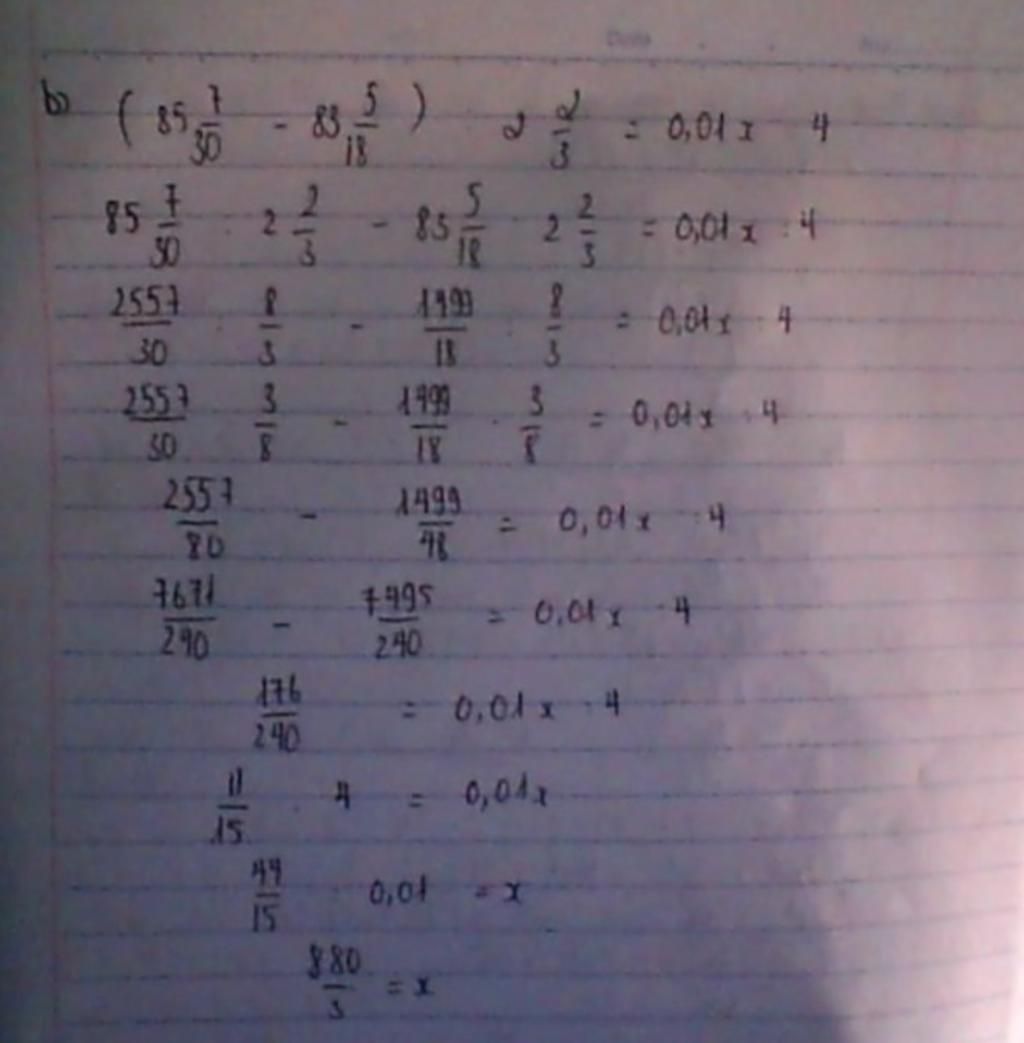 b) ( 85 7/30 - 83 5/18 ) 2 2/3 = 0,01x 4
85 7/30 : 2 2/3 - 83 5/18 : 2 2/3 = 0,01x : 4
2557/30 : 8/3 - 1499/18 : 8/3 = 0,01x : 4
2557/30 3/8 - 1499/18 · 3/8 = 0,01x : 4
2557/80 - 1499/48 = 0,01x : 4
7671/240 - 7495/240 = 0,01x : 4
176/240 = 0,01x : 4
11/15 · 4 = 0,01x
44/15 0,01 = x
880/3 = x